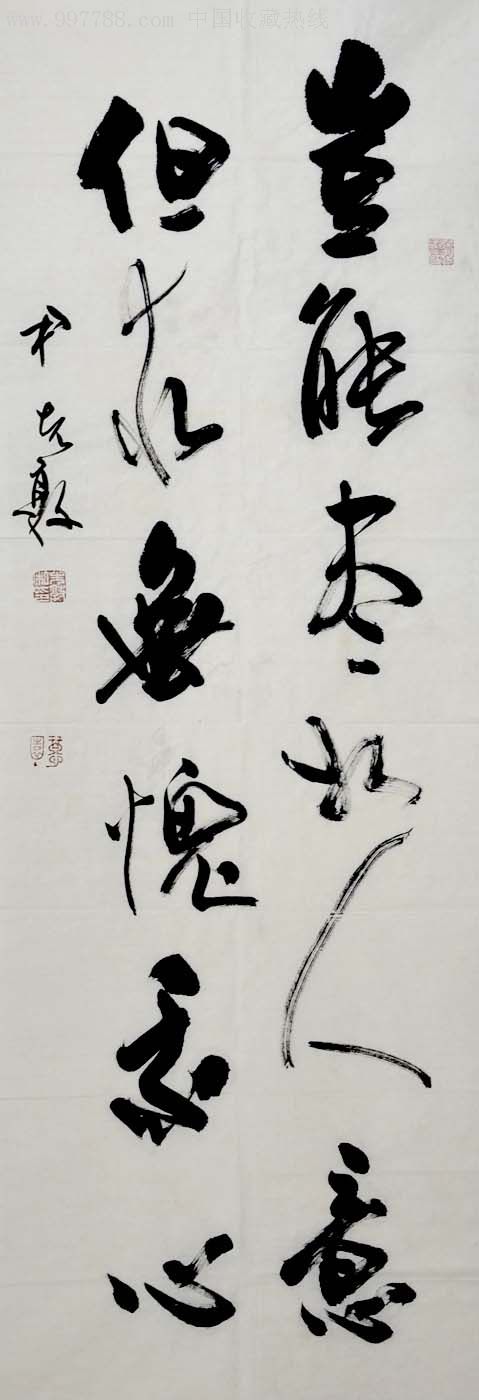 www.997788.com 中国收藏热线
豈能尽如人意
但求無愧我心